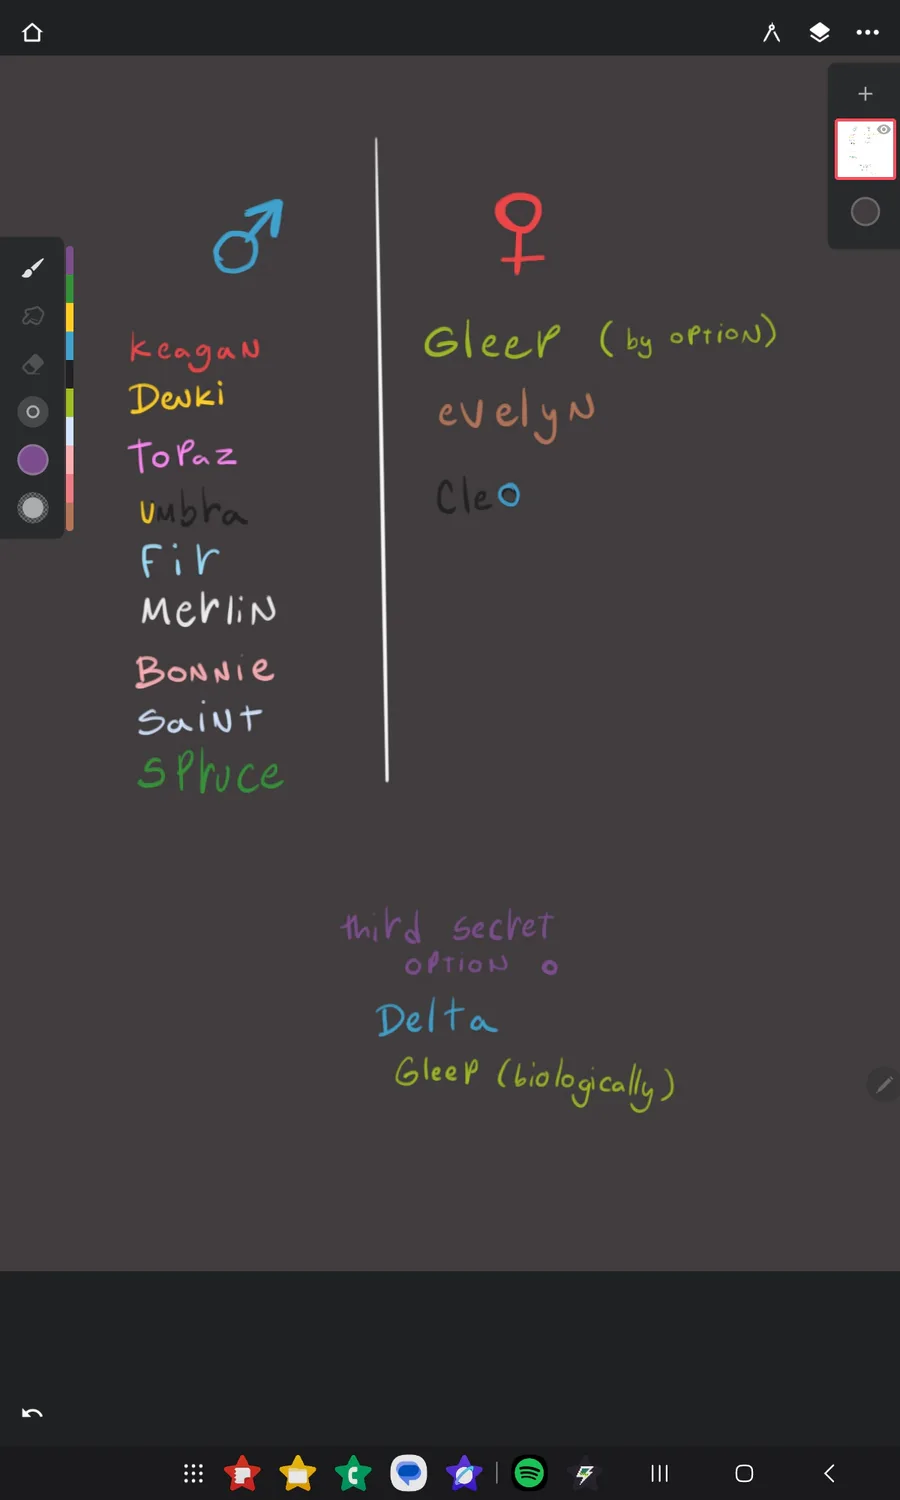 ♂
keagan
Denki
Topaz
Umbra
Fir
Merlin
Bonnie
Saint
Spruce
♀
Gleep (by option)
evelyn
Cleo
third secret
option o
Delta
Gleep (biologically)